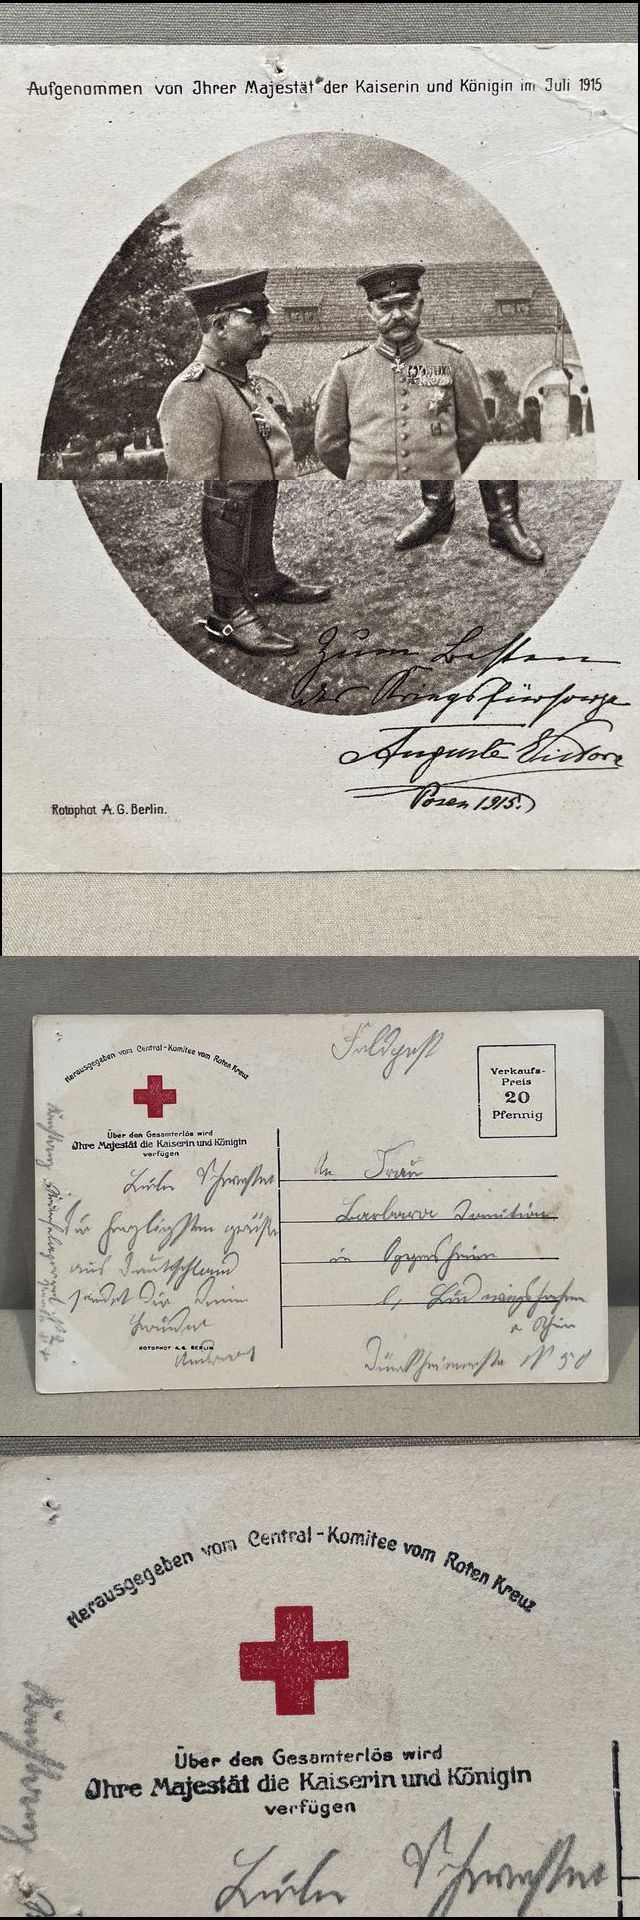 Aufgenommen von Ihrer Majestät der Kaiserin und Königin im Juli 1915
Zum Besten
der Kriegsfürsorge
Auguste Victoria
Posen 1915.
Rotophot A. G. Berlin.
Herausgegeben vom Central-Komitee vom Roten Kreuz
Über den Gesamterlös wird
Ihre Majestät die Kaiserin und Königin
verfügen
Feldpost
Verkaufs-
Preis
20
Pfennig
Liebe Schwester
Die herzlichsten Grüße
aus Deutschland
sendet Dir Deine
ROTOPHOT A.G. BERLIN
An Frau
Barbara
in Oggersheim
Ludwigshafen
a Rhein
Dürkheimerstr N° 50
Herausgegeben vom Central-Komitee vom Roten Kreuz
Über den Gesamterlös wird
Ihre Majestät die Kaiserin und Königin
verfügen
Liebe Schwester